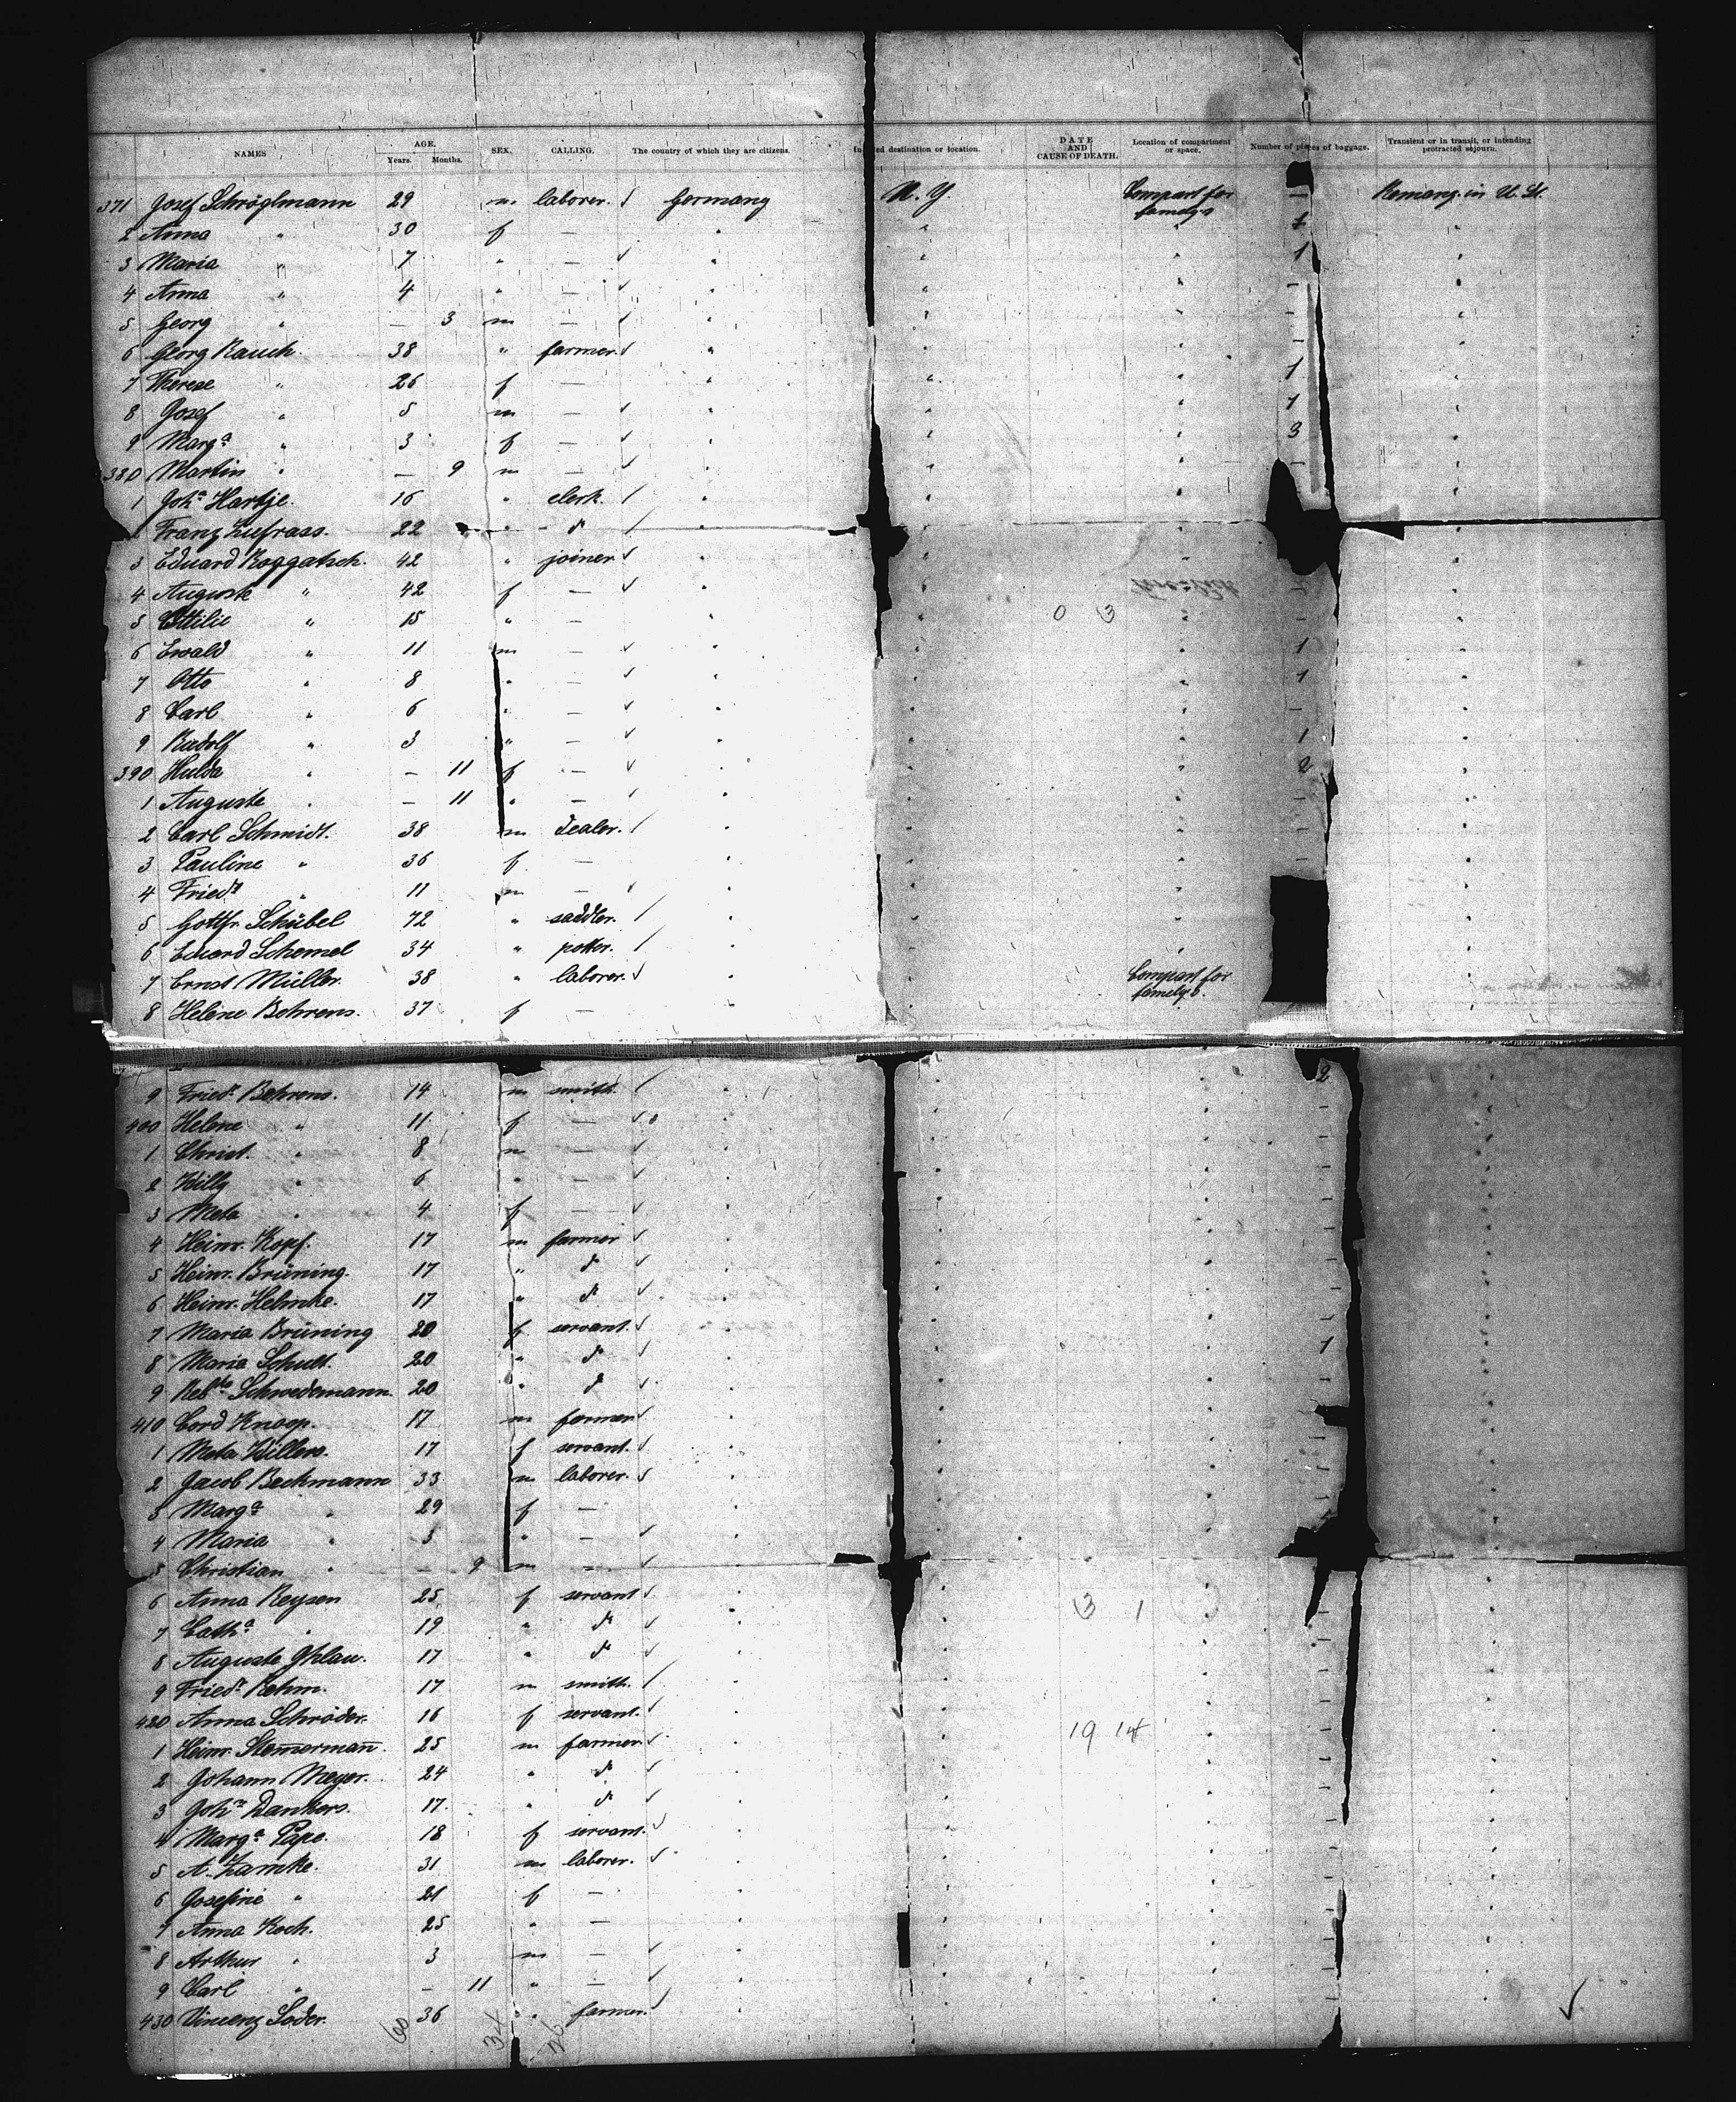 NAMES AGE. Years. Months. SEX. CALLING. The country of which they are citizens. In ed destination or location. DATE AND CAUSE OF DEATH. Location of compartment or space. Number of pieces of baggage. Transient or in transit, or intending protracted sojourn.
371 Josef Schröglmann 29 m laborer. Germany N. Y. Compart for family's — Remang. in U. St.
2 Anna " 30 f — " " " 1 "
3 Maria " 7 " — " " " 1 "
4 Anna " 4 " — " " " — "
5 Georg " — 3 m — " " " — "
6 Georg Rauch. 38 " farmer. " " " — "
7 Therese " 26 f — " " " 1 "
8 Josef " 5 m — " " " 1 "
9 Marga " 3 f — " " " 3 "
380 Martin " — 9 m — " " " — "
1 Joha Hartje. 16 " clerk. " " "
2 Franz Zufrass. 22 " do "
3 Eduard Roggatsch. 42 " joiner " " " "
4 Auguste " 42 f — " " " — "
5 Ottilie " 15 " — " " " — "
0 3
6 Ewald " 11 m — " " " 1 "
7 Otto " 8 " — " " " 1 "
8 Carl " 6 " — " " " — "
9 Rudolf " 3 " — " " " 1 "
390 Hulda " — 11 f — " " " 2 "
1 Auguste " — 11 " — " " " — "
2 Carl Schmidt. 38 m dealer. " " " — "
3 Pauline " 36 f — " " " — "
4 Friedr " 11 m — " " " "
5 Gottfr. Schübel 72 " saddler. " " " "
6 Eduard Schemel 34 " potter. " " " "
7 Ernst Müller. 38 " laborer. " " Compart for family's.
8 Helene Behrens. 37 f — " " " "
9 Friedr. Behrens. 14 m smith. " " " 2 "
400 Helene " 11 f — " " " — "
1 Christ. " 8 m — " " " — "
2 Willy " 6 " — " " " — "
3 Meta " 4 f — " " " — "
4 Heinr. Kopf. 17 m farmer " " " — "
5 Heinr. Brüning. 17 " do " " " — "
6 Heinr. Helmke. 17 " do " " " — "
7 Maria Brüning 20 f servant. " " " — "
8 Maria Schult. 20 " do " " " 1 "
9 Rebka Schwedemann. 20 " do " " " — "
410 Cord Knoop. 17 m farmer " " " "
1 Meta Willers. 17 f servant. " " " — "
2 Jacob Beckmann 33 m laborer. " " " — "
3 Marga " 29 f — " " " — "
4 Maria " 3 " — " " " "
5 Christian " — 9 m — " " "
6 Anna Reysen 25 f servant " " " — "
3 1
7 Catha " 19 " do " " " — "
8 Auguste Ghlau. 17 " do " " " — "
9 Friedr. Rehm. 17 m smith. " " " — "
420 Anna Schröder. 16 f servant. " " " — "
19 14
1 Heinr. Stemermann. 25 m farmer. " " " — "
2 Johann Meyer. 24 " do " " " — "
3 Johs Dankers. 17. " do " " " — "
4 Marga Pape. 18 f servant. " " " — "
5 A. Zamke. 31 m laborer. " " " — "
6 Josefine " 21 f — " " " — "
7 Anna Koch. 25 " — " " " — "
8 Arthur " 3 m — " " " — "
9 Carl " — 11 " — " " " — "
430 Vincenz Soder. 36 " farmer. " " " — "
60 34 26